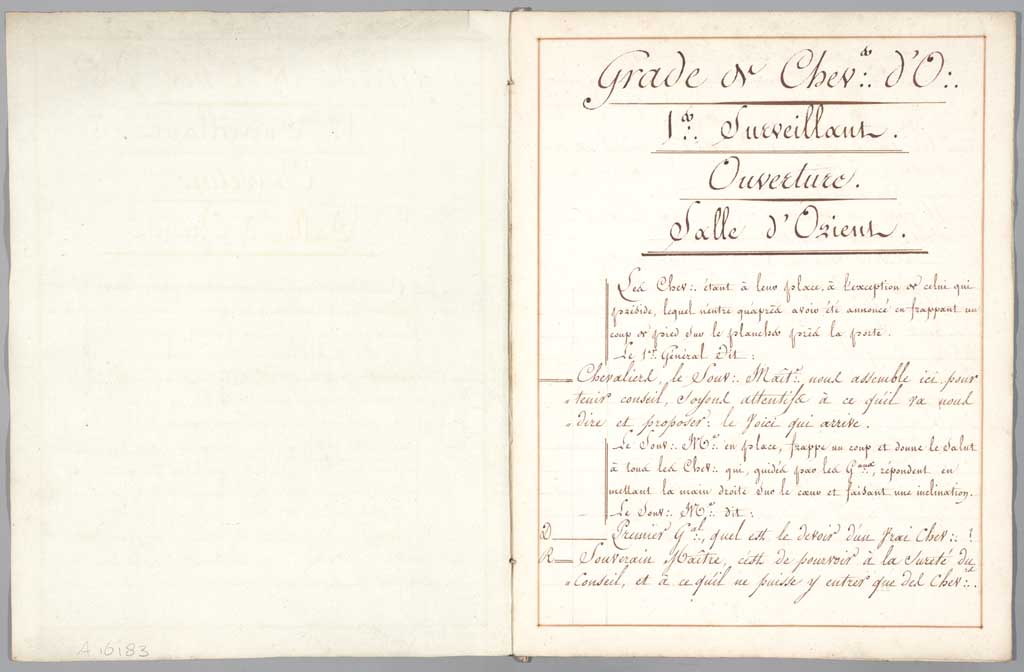 Grade de Chev.: d'O:.
1er. Surveillant.
Ouverture.
Salle d'Orient.
Les Chev:. étant à leur place, à l'exception de celui qui
préside, lequel n'entre qu'après avoir été annoncé en frappant un
coup de pied sur le plancher près la porte.
Le 1er. Général dit:
Chevaliers, le Souv:. Mait.re nous assemble ici pour
„ tenir conseil, soyons attentifs à ce qu'il va nous
„ dire et proposer: le voici qui arrive.
Le Souv:. M.e en place, frappe un coup et donne le salut
à tous les Chev:. qui, guidés par les G.aux, répondent en
mettant la main droite sur le cœur et faisant une inclination.
Le Souv:. M.e dit:
D Premier G.al, quel est le devoir d'un vrai Chev:. ?
R Souverain Maître, c'est de pourvoir à la sureté du
„ Conseil, et à ce qu'il ne puisse y entrer que des Chev:.
A.6183